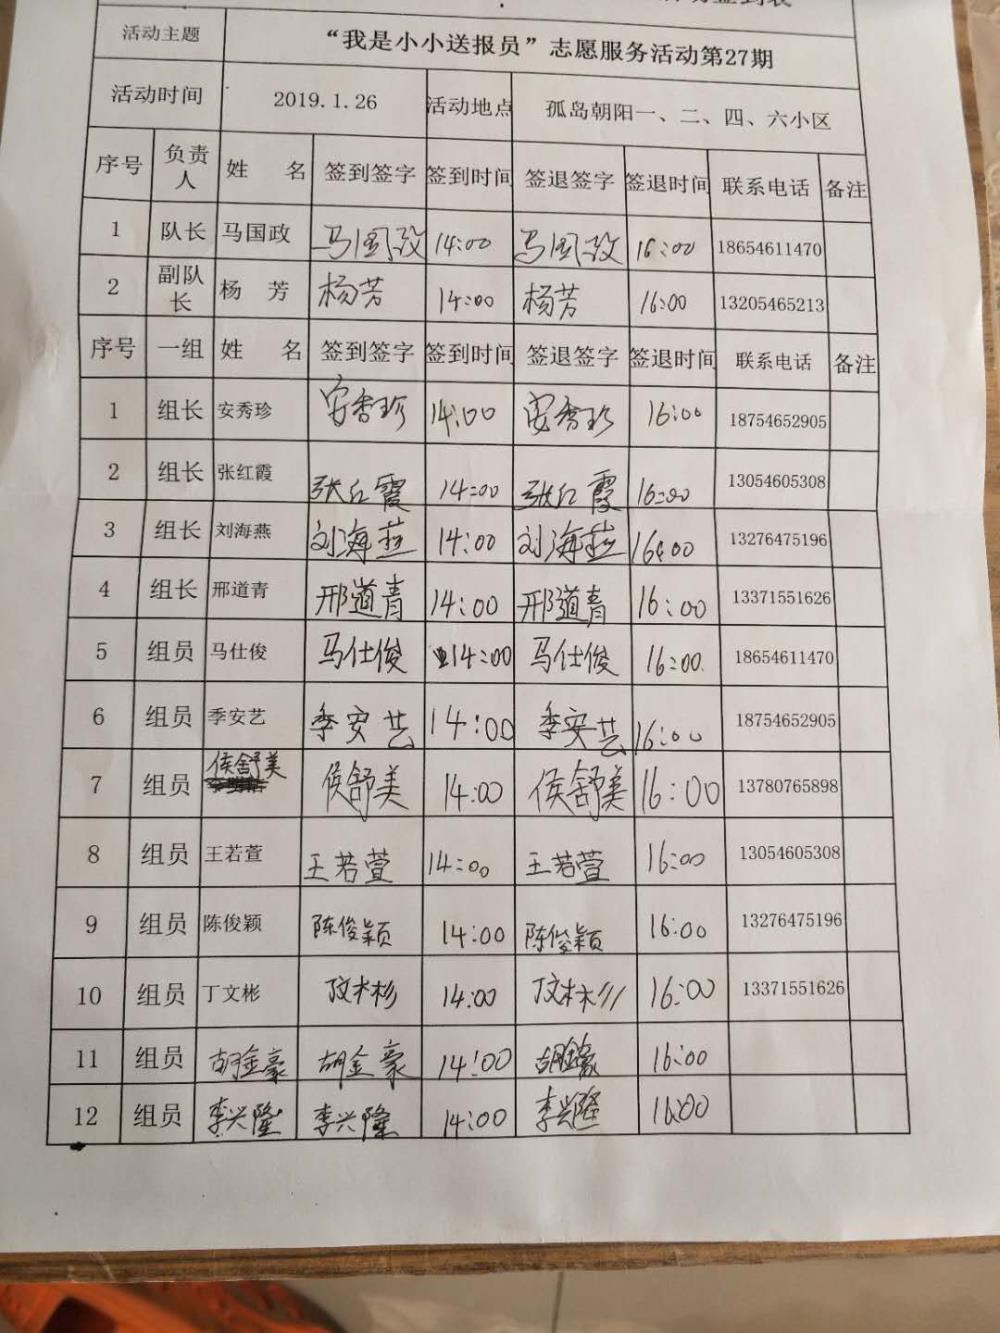 活动主题 “我是小小送报员”志愿服务活动第27期
活动时间 2019.1.26 活动地点 孤岛朝阳一、二、四、六小区
序号 负责人 姓 名 签到签字 签到时间 签退签字 签退时间 联系电话 备注
1 队长 马国政 马国政 14:00 马国政 16:00 18654611470
2 副队长 杨 芳 杨芳 14:00 杨芳 16:00 13205465213
序号 一组 姓 名 签到签字 签到时间 签退签字 签退时间 联系电话 备注
1 组长 安秀珍 安秀珍 14:00 安秀珍 16:00 18754652905
2 组长 张红霞 张红霞 14:00 张红霞 16:00 13054605308
3 组长 刘海燕 刘海燕 14:00 刘海燕 16:00 13276475196
4 组长 邢道青 邢道青 14:00 邢道青 16:00 13371551626
5 组员 马仕俊 马仕俊 14:00 马仕俊 16:00 18654611470
6 组员 季安艺 季安艺 14:00 季安艺 16:00 18754652905
7 组员 侯舒美 侯舒美 14:00 侯舒美 16:00 13780765898
8 组员 王若萱 王若萱 14:00 王若萱 16:00 13054605308
9 组员 陈俊颖 陈俊颖 14:00 陈俊颖 16:00 13276475196
10 组员 丁文彬 丁文彬 14:00 丁文彬 16:00 13371551626
11 组员 胡金豪 胡金豪 14:00 胡金豪 16:00
12 组员 李兴隆 李兴隆 14:00 李兴隆 16:00